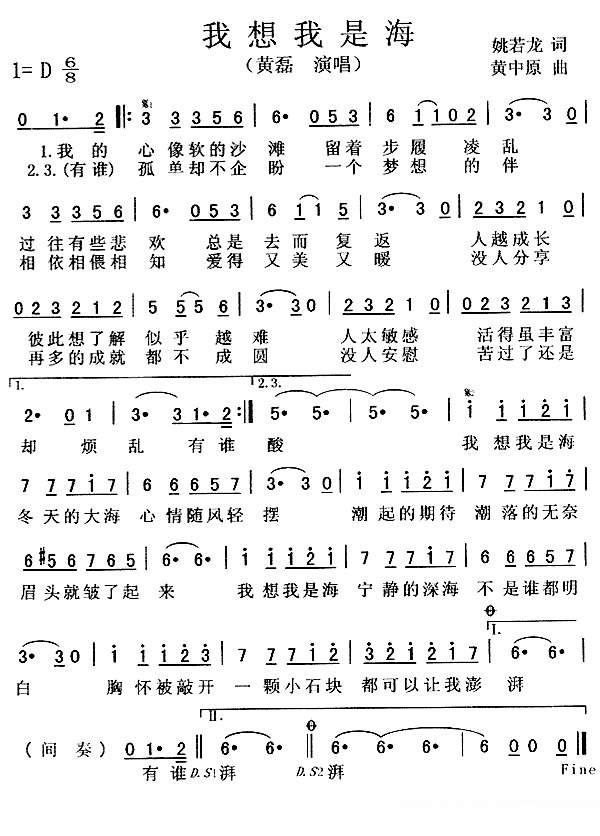 我想我是海
1=D 6/8
（黄磊 演唱）
姚若龙 词
黄中原 曲
0 1· 2 ‖: 3 3 3 5 6 | 6· 0 5 3 | 6 1 1 0 2 | 3· 3 0
1.我的 心像软的沙滩 留着步履 凌乱
2.3.(有谁) 孤单却不企盼 一个梦想 的伴
3 3 3 5 6 | 6· 0 5 3 | 6 1 1 5 | 3· 3 0 | 2 3 2 1 0
过往有些悲欢 总是去而复返 人越成长
相依相偎相知 爱得又美又暖 没人分享
0 2 3 2 1 2 | 5 5 5 6 | 3· 3 0 | 2 3 2 1 0 | 0 2 3 2 1 2
彼此想了解似乎越难 人太敏感 活得虽丰富
再多的成就都不成圆 没人安慰 苦过了还是
1. 2.3.
2· 0 1 | 3· 3 1· 2 :‖ 5· 5· | 5· 5· | 1 1 1 2 1
却 烦乱 有谁酸 我想我是海
7 7 7 1 7 | 6 6 6 5 7 | 3· 3 0 | 1 1 1 2 1 | 7 7 7 1 7
冬天的大海 心情随风轻摆 潮起的期待 潮落的无奈
6 #5 6 7 6 5 | 6· 6· | 1 1 1 2 1 | 7 7 7 1 7 | 6 6 6 5 7
眉头就皱了起来 我想我是海 宁静的深海 不是谁都明
I.
3· 3 0 | 1 1 1 2 3 | 7 7 7 1 2 | 3 2 1 2 1 7 | 6· 6·
白 胸怀被敲开 一颗小石块 都可以让我澎湃
II.
（间奏） 0 1· 2 ‖ 6· 6· | 6· 6· | 6· 6· | 6 0 0 0
有谁D.S1湃 D.S2湃 Fine